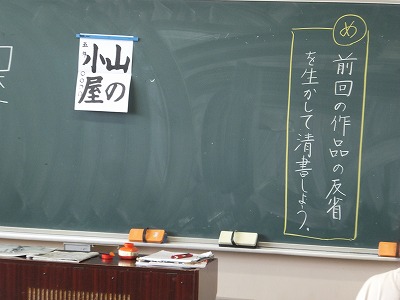 め
前回の作品の反省
を生かして清書しよう。
山の
小屋